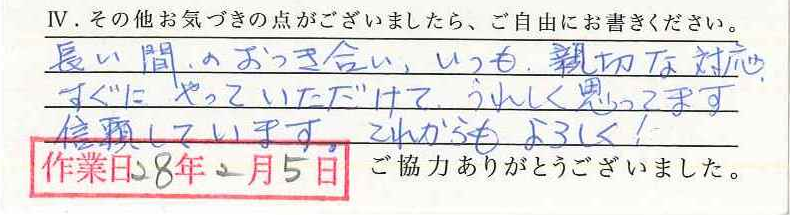 Ⅳ．その他お気づきの点がございましたら、ご自由にお書きください。
長い間、のおつき合い、いつも、親切な対応、
すぐに やっていただけて、うれしく思ってます
信頼しています。これからもよろしく！
作業日28年2月5日
ご協力ありがとうございました。